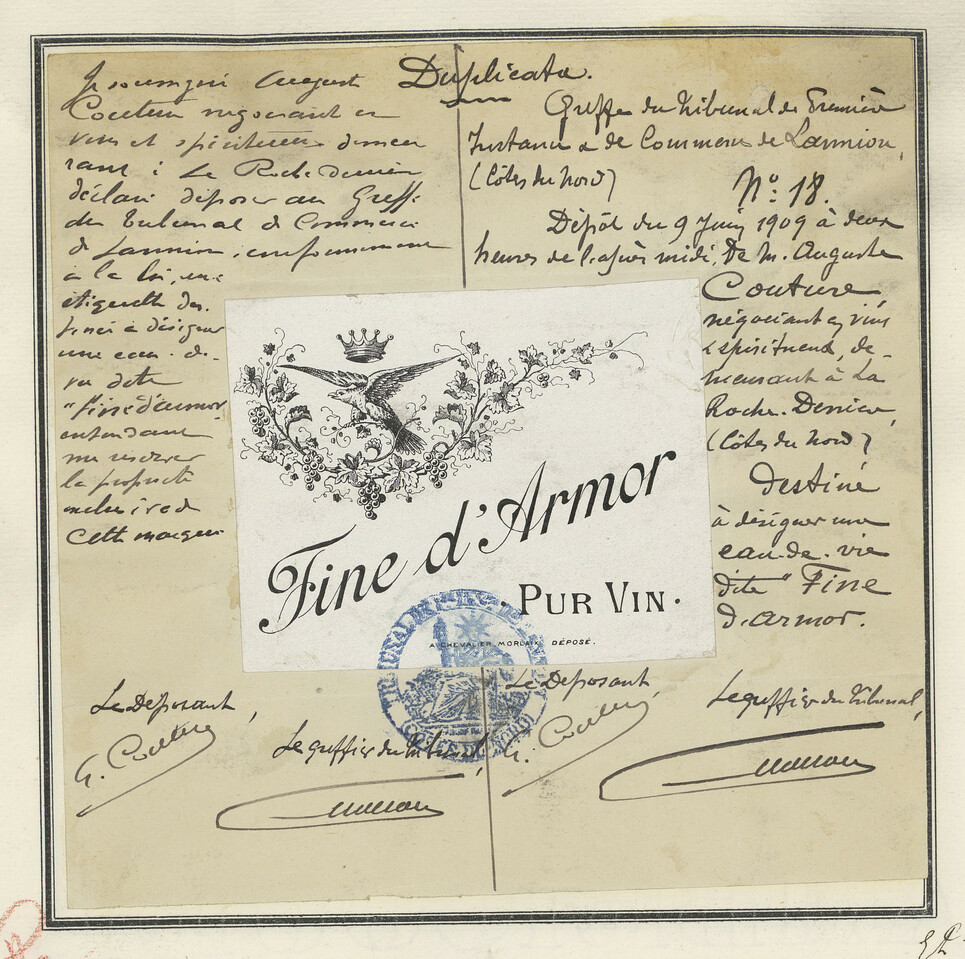 Duplicata.
Je soussigné August
Couture négociant en
vins et spiritueux demeu
rant à La Roche Derrien
déclare déposer au Greffe
du Tribunal de Commerce
de Lannion, conformément
à la loi, une
étiquette des
tinée à désigner
une eau-de-
vie dite
"fine d'armor"
entendant
me réserver
la propriété
exclusive de
cette marque
Le Déposant,
Le greffier du Tribunal,
Greffe du Tribunal de Première
Instance & de Commerce de Lannion,
(Côtes du Nord)
No. 18.
Dépôt du 9 Juin 1909 à deux
heures de l'après midi, De M. Auguste
Couture
négociant en vins
& spiritueux, de-
meurant à La
Roche-Derrien,
(Côtes du Nord)
destiné
à désigner une
eau-de-vie
dite "Fine
d'armor.
Le Déposant,
Le greffier du Tribunal,
Fine d'Armor
·PUR VIN·
A. CHEVALIER, MORLAIX. DÉPOSÉ.